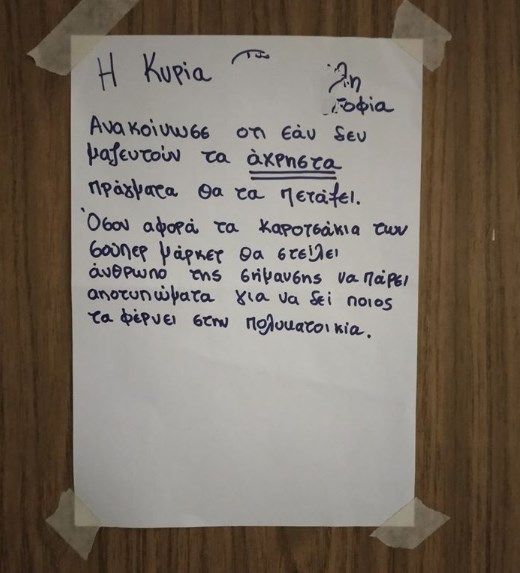 Η Κυρία
Σοφία
Ανακοίνωσε οτι εάν δεν
μαζευτούν τα άχρηστα
πράγματα θα τα πετάξει.
Όσον αφορά τα καροτσάκια των
σούπερ μάρκετ θα στείλει
άνθρωπο της σήμανσης να πάρει
αποτυπώματα για να δεί ποιος
τα φέρνει στην πολυκατοικία.